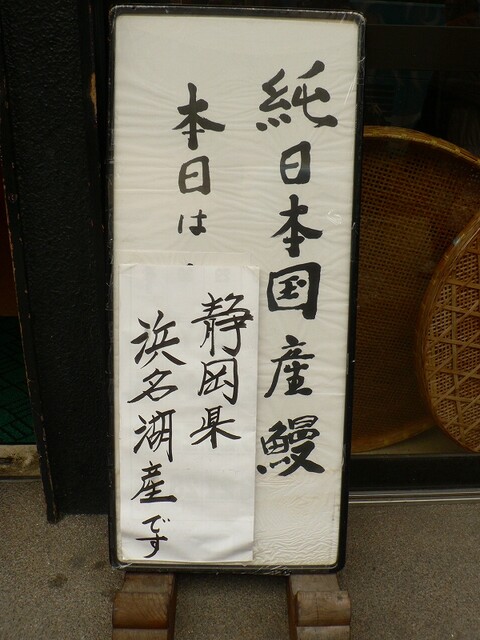 純日本国産鰻
本日は
静岡県
浜名湖産です